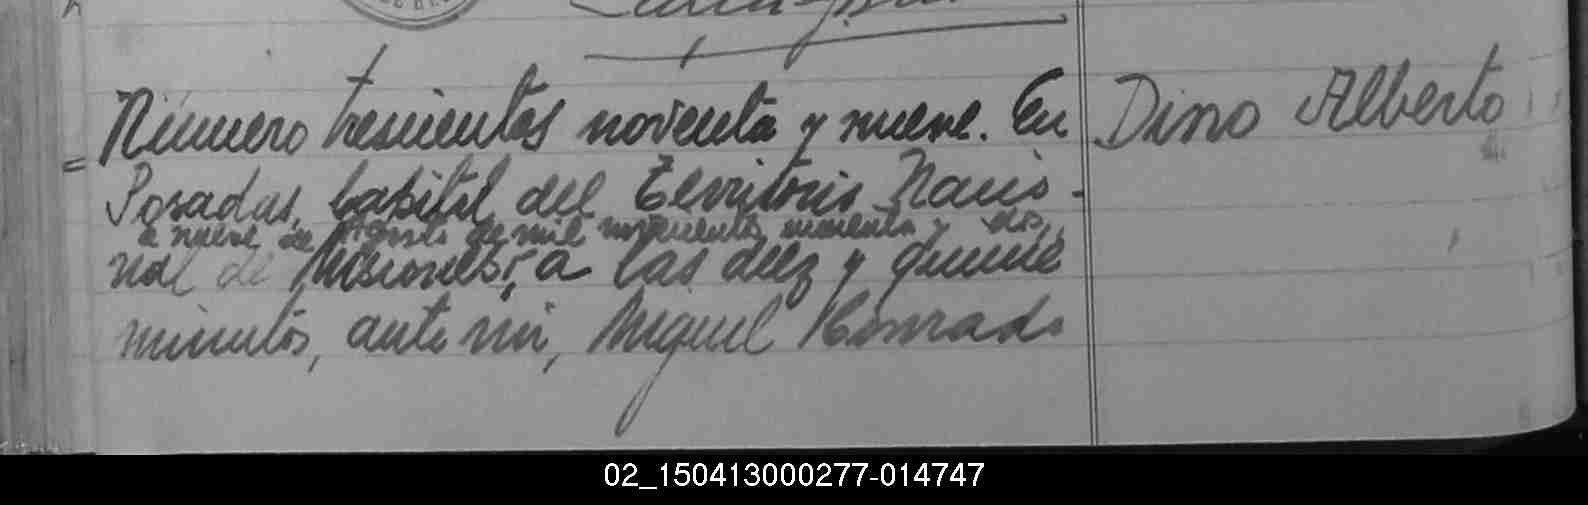 Número trescientos noventa y nueve. En
Posadas, Capital del Territorio Nacio-
a nueve de Agosto de mil novecientos cuarenta y dos,
nal de Misiones, a las diez y quince
minutos, ante mi, Miguel Conrado
Dino Alberto
02_150413000277-014747